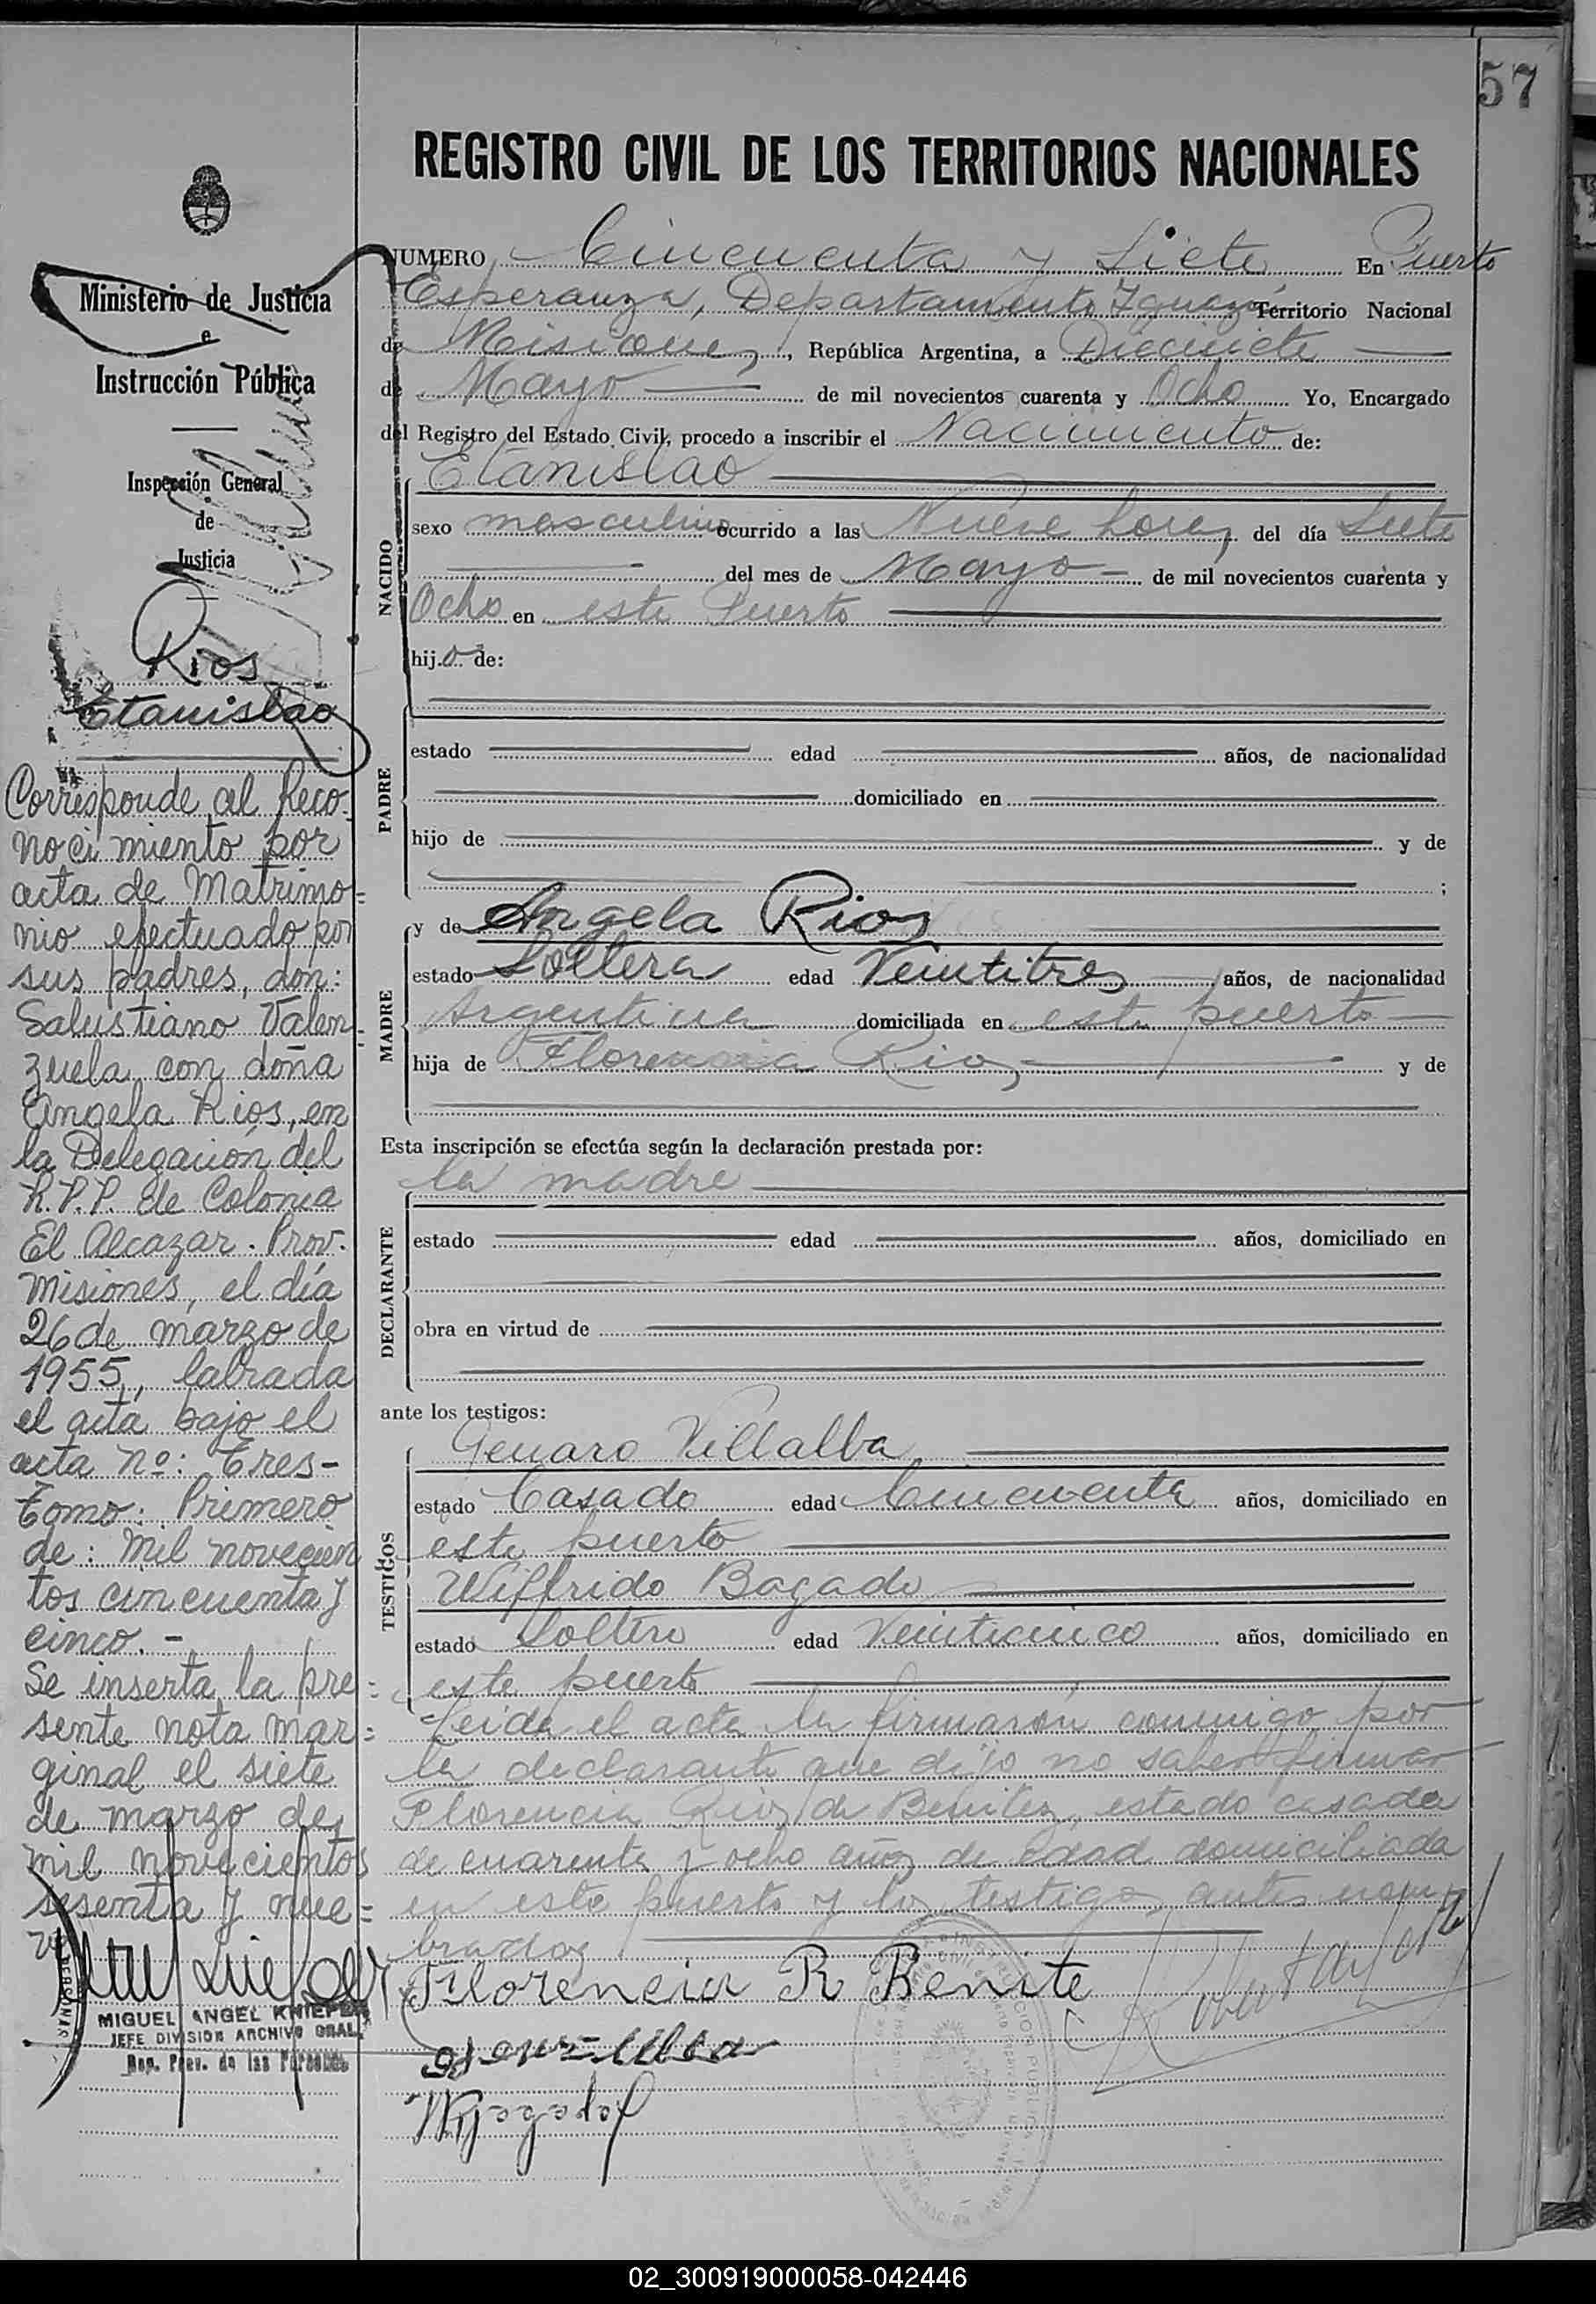 57
REGISTRO CIVIL DE LOS TERRITORIOS NACIONALES
NUMERO Cincuenta y Siete En Puerto
Esperanza, Departamento Iguazú Territorio Nacional
de Misiones, República Argentina, a Diecisiete
de Mayo de mil novecientos cuarenta y Ocho Yo, Encargado
del Registro del Estado Civil, procedo a inscribir el Nacimiento de:
NACIDO
Etanislao
sexo masculino ocurrido a las Nueve horas del día Siete
del mes de Mayo de mil novecientos cuarenta y
Ocho en este Puerto
hijo de:
PADRE
estado edad años, de nacionalidad
domiciliado en
hijo de y de
;
MADRE
y de Angela Rios
estado Soltera edad Veintitres años, de nacionalidad
Argentina domiciliada en este puerto
hija de Florencia Rios y de
Esta inscripción se efectúa según la declaración prestada por:
la madre
DECLARANTE
estado edad años, domiciliado en
obra en virtud de
ante los testigos:
TESTIGOS
Genaro Villalba
estado Casado edad Cincuenta años, domiciliado en
este puerto
Wilfrido Bogado
estado Soltero edad Veinticinco años, domiciliado en
este puerto
Leida el acta la firmaron conmigo por
la declarante que dijo no saber firmar
Florencia Rios de Benitez, estado casada
de cuarenta y ocho años de edad domiciliada
en este puerto y los testigos antes nom
brados
Florencia R Benite
Ministerio de Justicia
e
Instrucción Pública
Inspección General
de
Justicia
Rios
Etanislao
Corresponde al Reco-
nocimiento por
acta de Matrimo=
nio efectuado por
sus padres, don:
Salustiano Valen=
zuela con doña
Angela Rios, en
la Delegación del
R.P.P. de Colonia
El Alcazar. Prov.
Misiones, el día
26 de marzo de
1955, labrada
el acta bajo el
acta nº: Tres-
Tomo: Primero
de: Mil novecien
tos cincuenta y
cinco.-
Se inserta la pre=
sente nota mar=
ginal el siete
de marzo de
mil novecientos
sesenta y nue=
ve
MIGUEL ANGEL KNIEPER
JEFE DIVISION ARCHIVO GRAL.
Reg. Prov. de las Personas
02_300919000058-042446